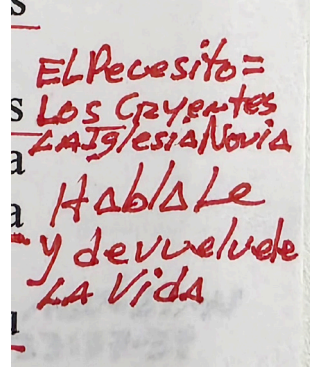 s
El Pecesito =
s Los Cryentes
a La Iglesia Novia
a Hablale
y devuelvele
La Vida
u